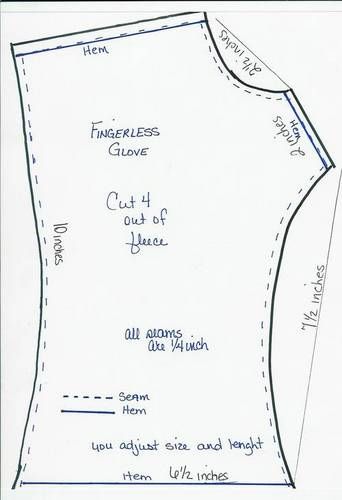 Hem
2 1/2 inches
Hem
2 inches
Fingerless
Glove
Cut 4
out of
fleece
10 inches
7 1/2 inches
all seams
are 1/4 inch
Seam
Hem
you adjust size and lenght
Hem 6 1/2 inches